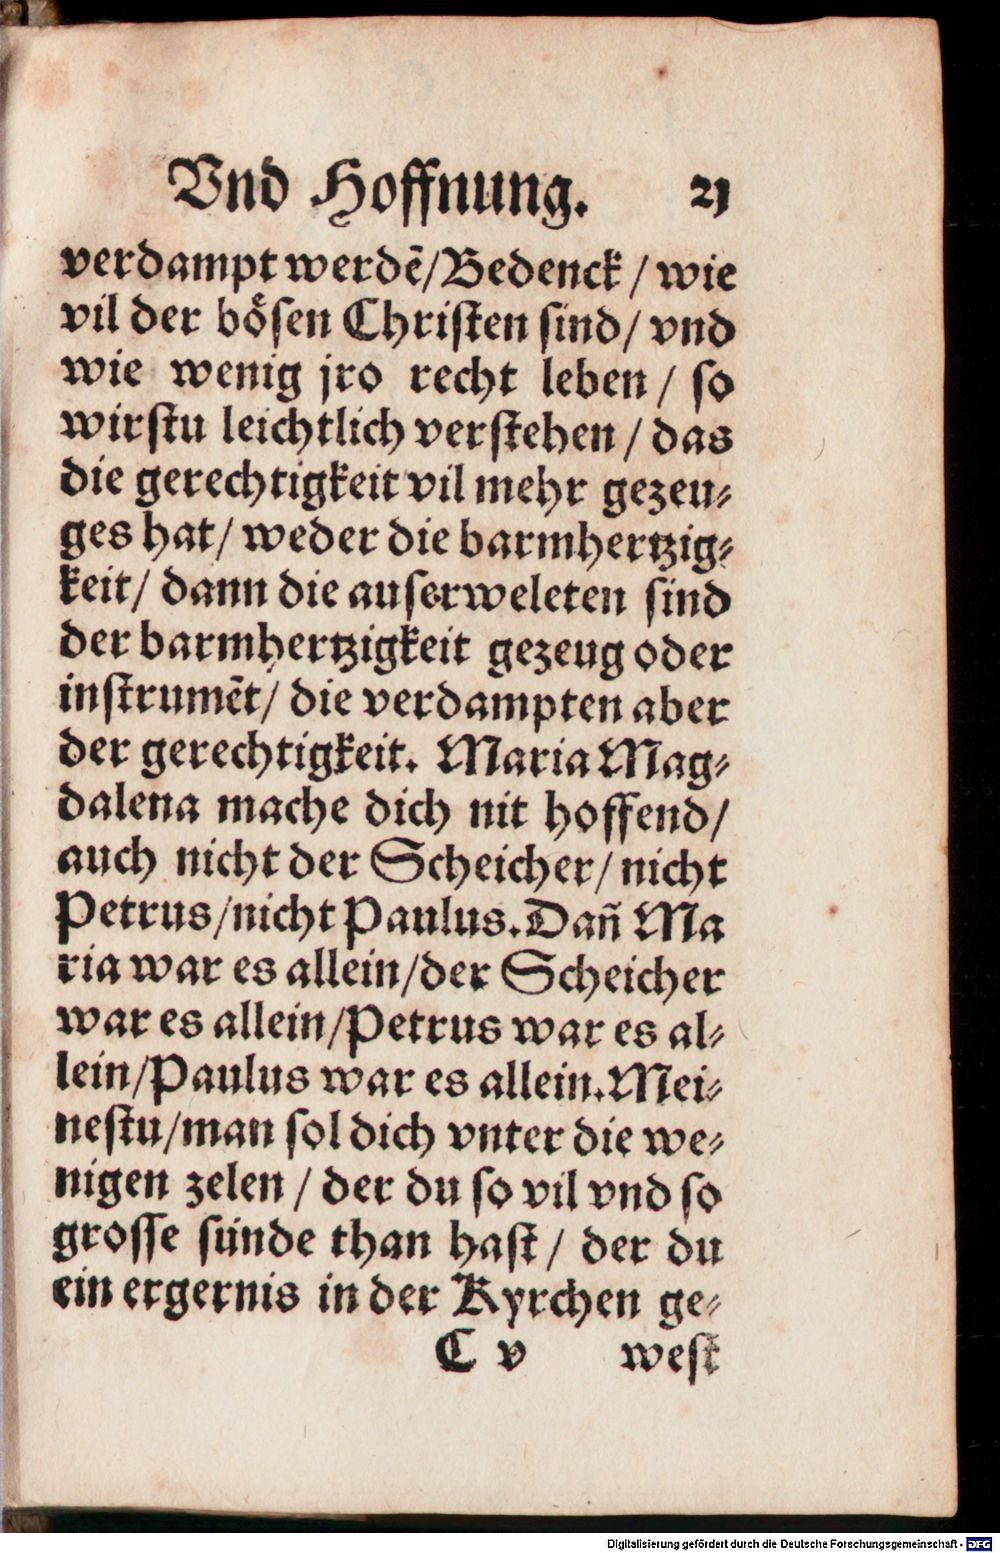 Vnd Hoffnung. 21
verdampt werdẽ/Bedenck / wie
vil der boͤsen Christen sind/ vnd
wie wenig jro recht leben / so
wirstu leichtlich verstehen / das
die gerechtigkeit vil mehr gezeu⸗
ges hat/ weder die barmhertzig⸗
keit/ dann die auserweleten sind
der barmhertzigkeit gezeug oder
instrumẽt/ die verdampten aber
der gerechtigkeit. Maria Mag⸗
dalena mache dich nit hoffend/
auch nicht der Scheicher/ nicht
Petrus/nicht Paulus. Dañ Ma
ria war es allein/der Scheicher
war es allein/Petrus war es al⸗
lein/Paulus war es allein. Mei⸗
nestu/man sol dich vnter die we⸗
nigen zelen / der du so vil vnd so
grosse sünde than hast / der du
ein ergernis in der Kyrchen ge⸗
C v west
Digitalisierung gefördert durch die Deutsche Forschungsgemeinschaft - DFG